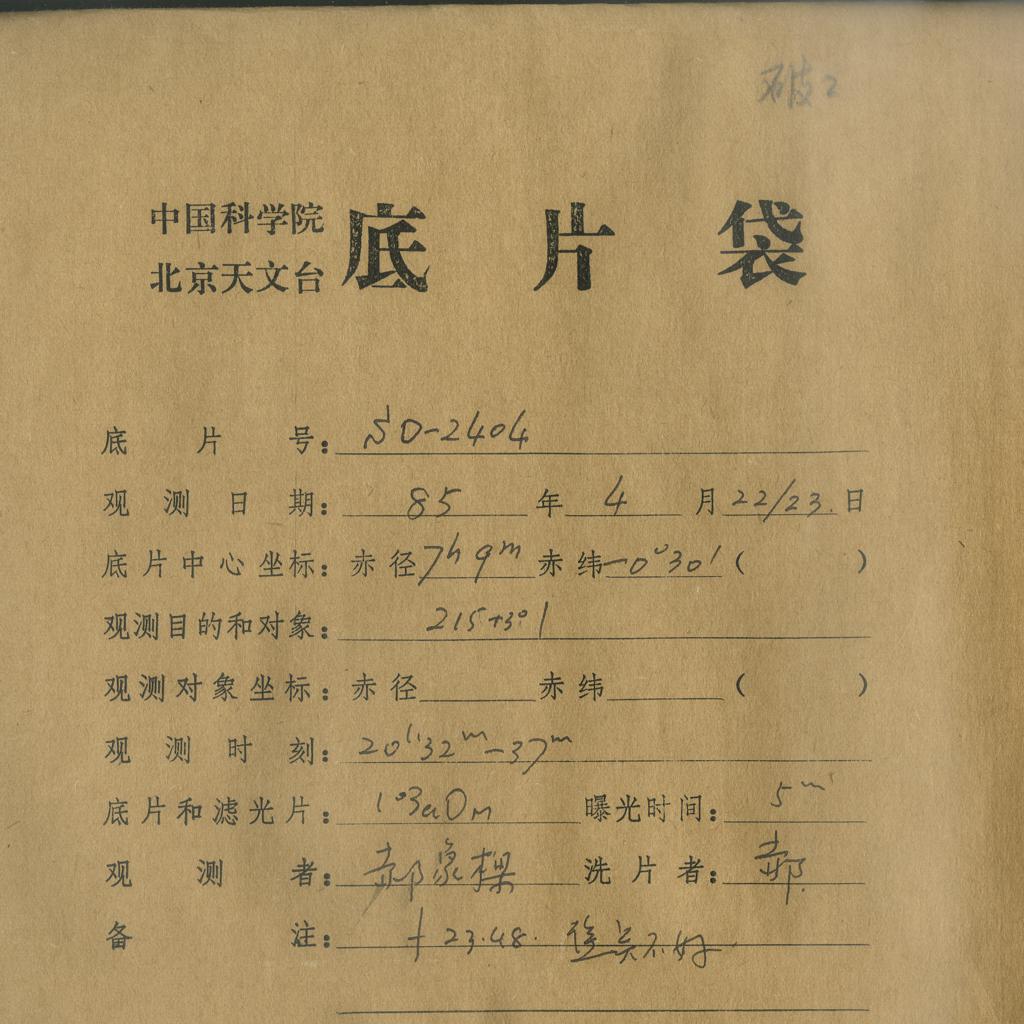 破2
中国科学院
北京天文台
底片袋
底片号：SO-2404
观测日期：85年4月22/23.日
底片中心坐标：赤径7h9m赤纬-0°30′（ ）
观测目的和对象：215+3°1
观测对象坐标：赤径 赤纬 （ ）
观测时刻：20h32m-37m
底片和滤光片：103aO 曝光时间：5m
观测者：郝象樑 洗片者：郝
备注：+23.48. 不好